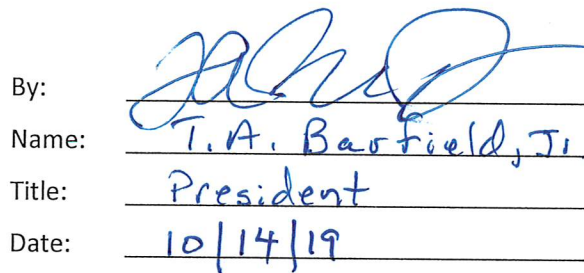 By:
Name: T.A. Barfield, Jr.
Title: President
Date: 10/14/19